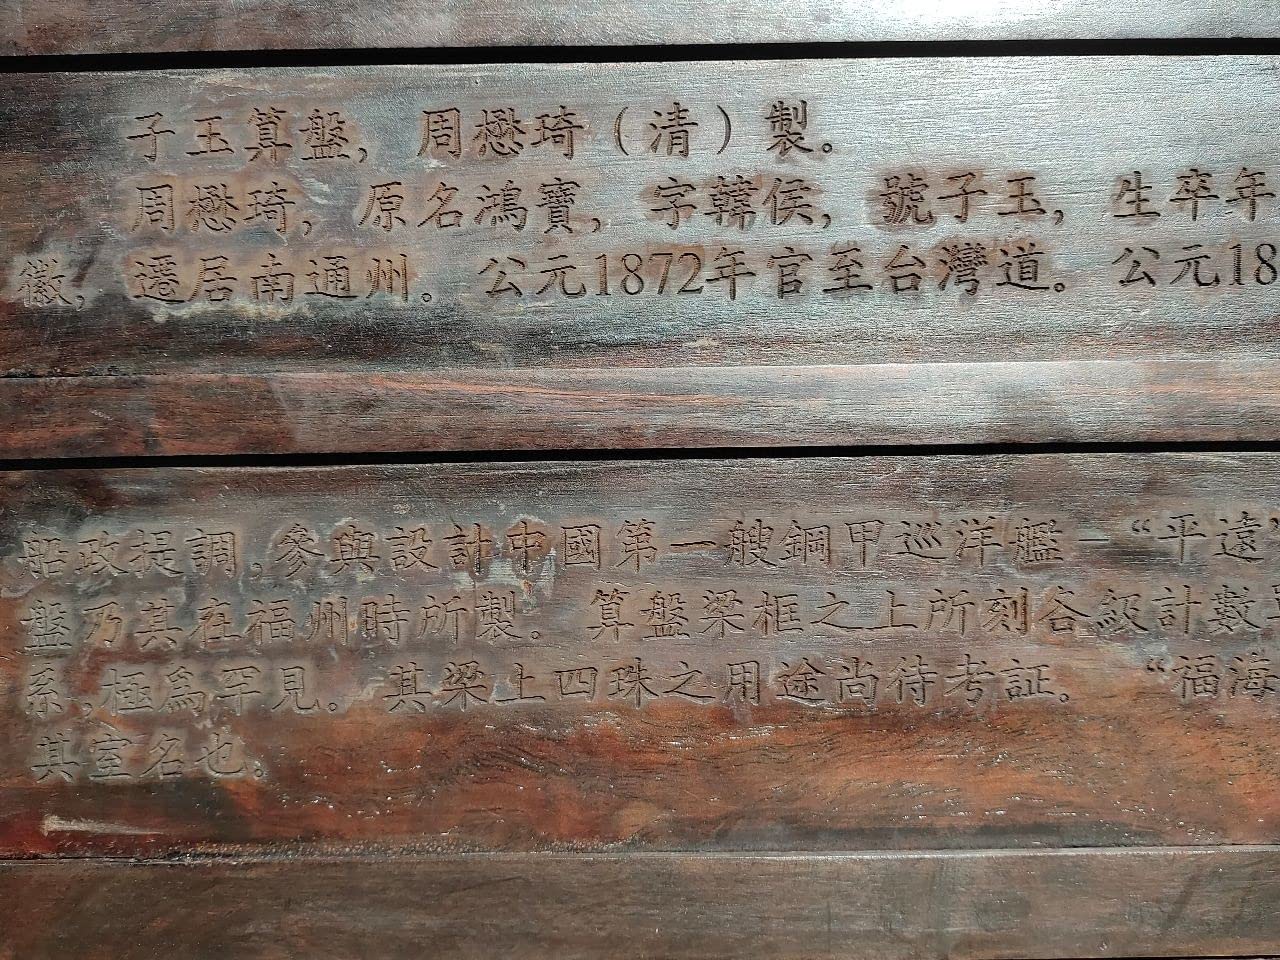 子玉算盤，周懋琦（清）製。
周懋琦，原名鴻寶，字韓侯，號子玉，生卒年
徽，遷居南通州。公元1872年官至台灣道。公元18
船政提調，參與設計中國第一艘鋼甲巡洋艦—“平遠”
盤乃其在福州時所製。算盤梁框之上所刻各級計數單
系，極爲罕見。其梁上四珠之用途尚待考証。“福海
其室名也。